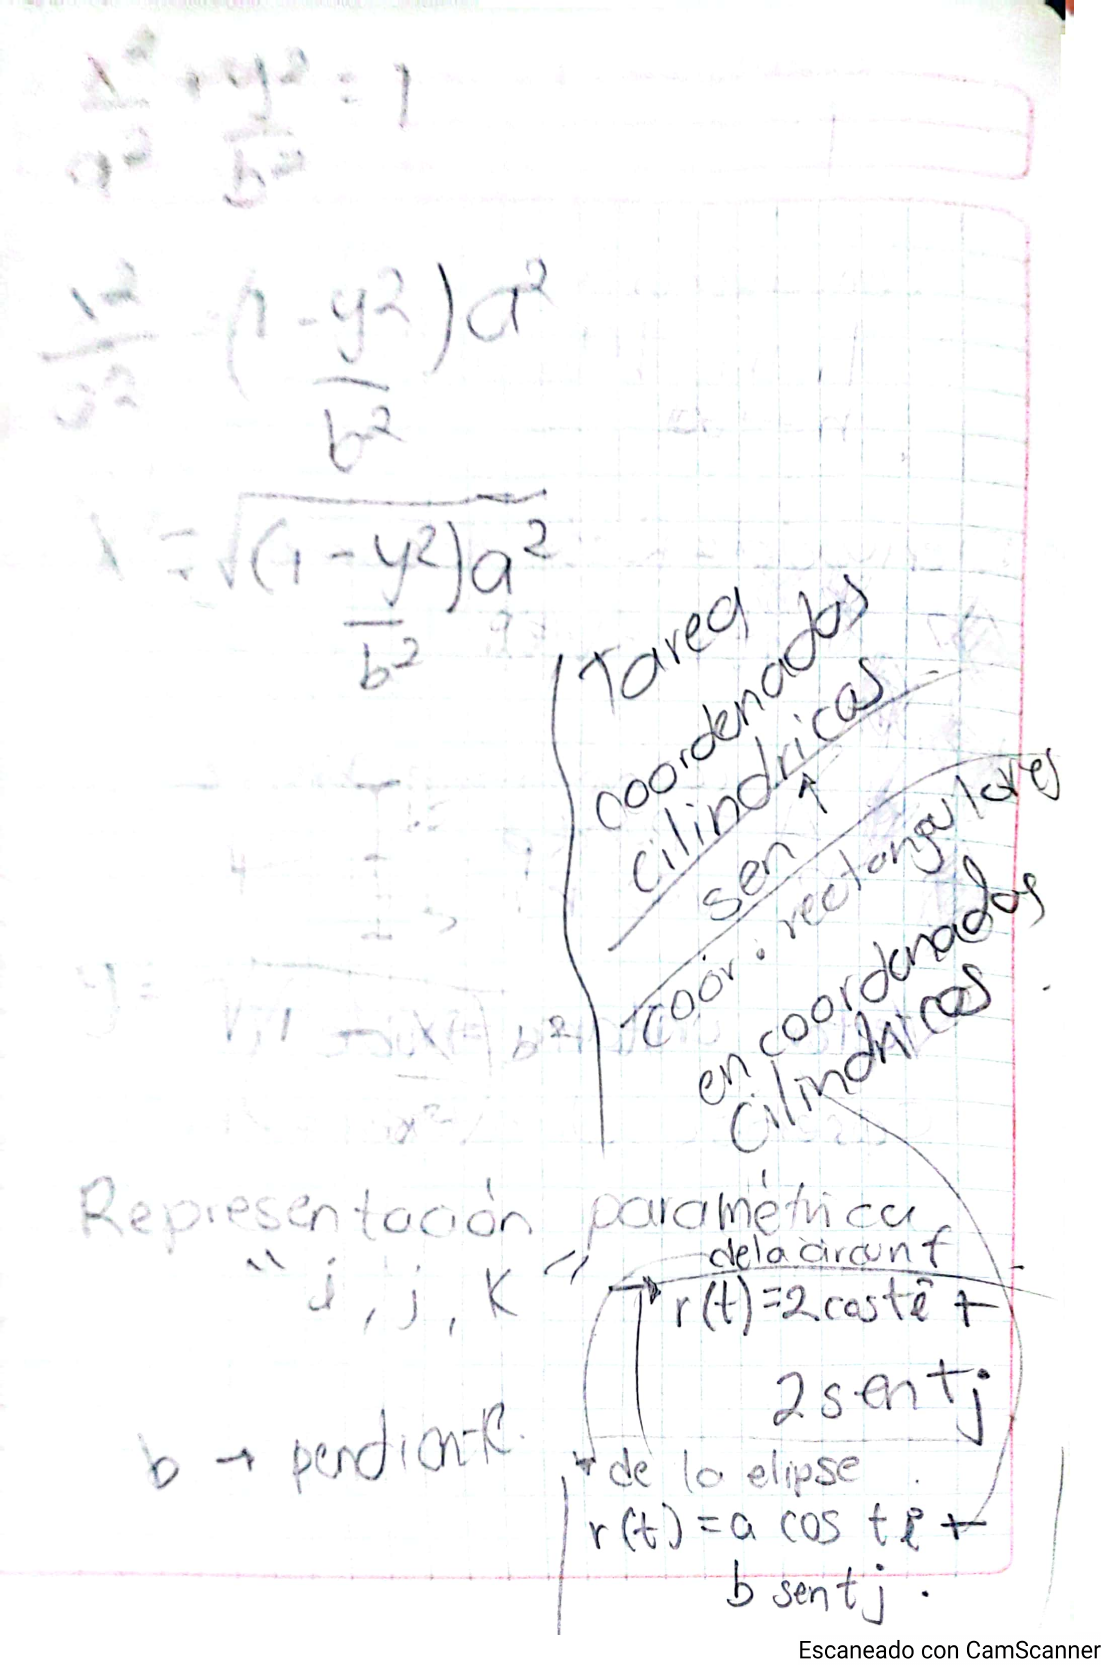 x²/a² + y²/b² = 1
x²/a² (1 - y²/b²) a²
x = √(1 - y²/b²) a²
Tarea
coordenadas
cilindricas
sen
coor. rectangulares
en coordenadas
cilindricas
y =
Representación paramétrica
"i, j, K"
de la circunf
r(t) = 2 cos t î +
2 sen t j
b → pendiente.
de la elipse
r(t) = a cos t î +
b sen t j.
Escaneado con CamScanner